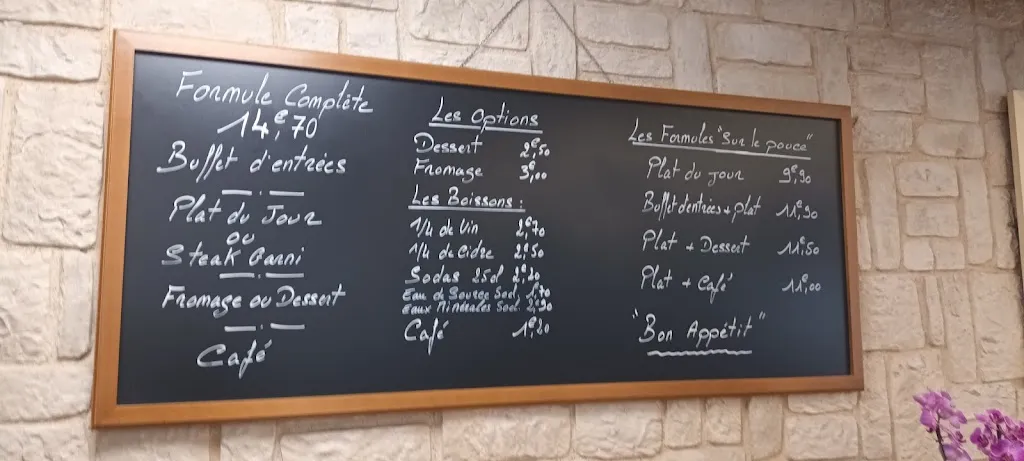 Formule Complète
14€,70
Buffet d'entrées
Plat du Jour
ou
Steak Garni
Fromage ou Dessert
Café
Les Options
Dessert 2€,50
Fromage 3€,00
Les Boissons :
1/4 de Vin 2€,70
1/4 de Cidre 2€,50
Sodas 25cl
Eau de Source 50cl
Eaux Minérales 50cl
Café 1€,20
Les Formules "Sur le pouce"
Plat du jour 9€,90
Buffet d'entrées + Plat 11€,90
Plat + Dessert 11€,50
Plat + Café 11€,00
"Bon Appétit"